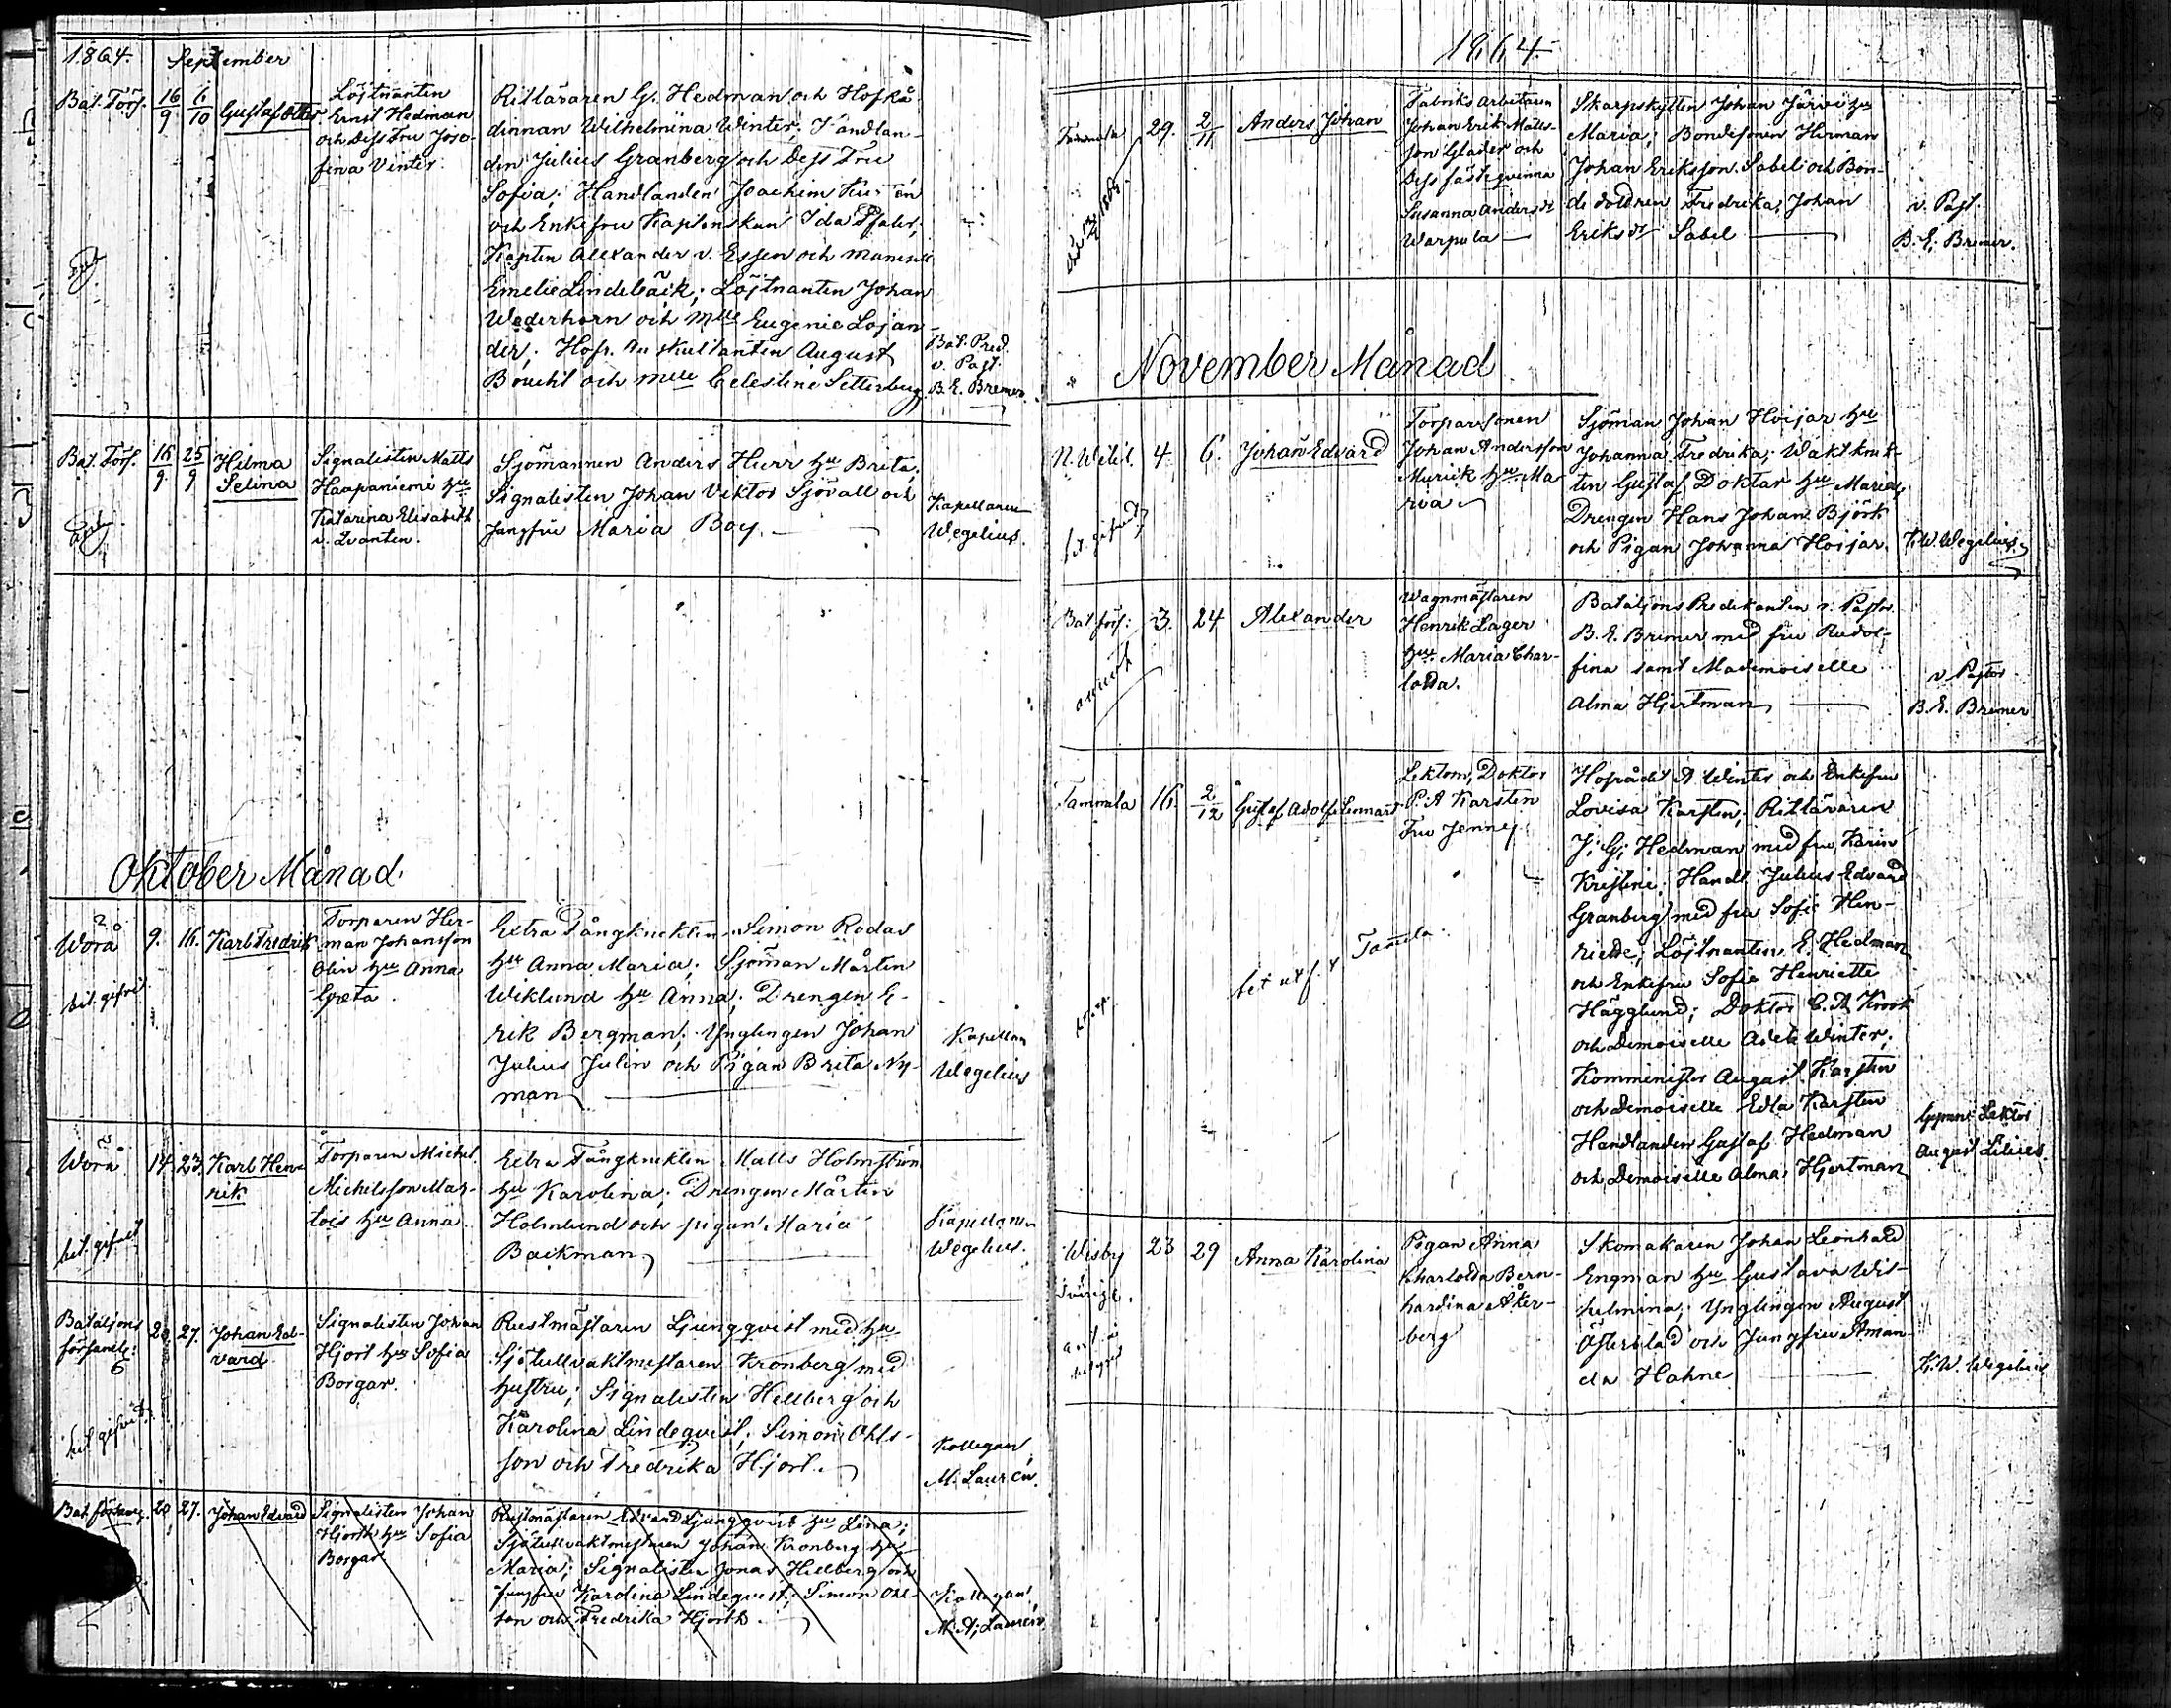 1864.
September
Bat. Förs. 16/9 6/10 Gustaf Otto.
Löjtnanten
Ernst Hedman
och Dess Fru Joso-
fina Vinter.
Rittäraren G. Hedman och Hofrå-
dinnan Wilhelmina Winter; Handlan-
den Julius Granberg och Dess Fru
Sofia; Handlanden Joachim
och Enkefru Kaptenskan Ida Pfaler;
Kapten Alexander v. Essen och Mamsell
Emelie Lindebäck; Löjtnanten Johan
Wederhorn och Mlle Eugenie Lojan-
der; Hofr. Auskultanten August
Boucht och Mlle Celestine Setterberg
Bat. Pred.
v. Past.
B. E. Bremer.
Bat. Förs. 16/9 25/9 Hilma
Selina
Signalisten Matts
Haapaniemi hu
Katarina Elisabeth
v. Lvanten.
Sjömannen Anders Hurr hu Brita;
Signalisten Johan Viktor Sjövall och
Jungfru Maria Boy.
Kapellanen
Wegelius.
Oktober Månad.
Worå 9. 16. Karl Fredrik
bet. gifvet
Torparen Her-
man Johansson
Olin hu Anna
Greta.
Extra Fångknekten Simon Rodas
hu Anna Maria; Sjöman Mårten
Wiklund hu Anna; Drengen E-
rik Bergman; Ynglingen Johan
Julius Julin och Pigan Brita Ny-
man
Kapellan
Wegelius
Worå 14. 23. Karl Hen-
rik
bet. gifvet
Torparen Michel
Michelsson Mar-
tois hu Anna.
Extra Fångknekten Matts Holmström
hu Karolina; Drengen Mårten
Holmlund och pigan Maria
Backman
Kapellanen
Wegelius.
Bataljons
församl: 20 27. Johan Ed-
vard
bet. gifvet
Signalisten Johan
Hjort hu Sofia
Borgar.
Rustmästaren Ljungqvist med hu
Sjötullvaktmestaren Kronberg med
hustru; Signalisten Hellberg och
Karolina Lindeqvist; Simon Ohls-
son och Fredrika Hjort.
Kollegan
M. Laurén.
Bat. förs. 20 27. Johan Edvard
Signalisten Johan
Hjorth hu Sofia
Borgar
Rustmästaren Edvard Ljungqvist hu Lina;
Sjötullvaktmestaren Johan Kronberg hu
Maria; Signalisten Jonas Hellberg och
jungfru Karolina Lindeqvist; Simon Ohl-
son och Fredrika Hjorth.
Kollegan
M. A. Laurén.
1864.
29. 2/11 Anders Johan
Fabriksarbetaren
Johan Erik Matts-
son Glader och
Dess fästeqvinna
Susanna Anders dr
Warpula
Skarpskytten Johan Järvi hu
Maria; Bondesonen Herman
Johan Eriksson Sabel och Bon-
de dottren Fredrika Johan
Eriks dr Sabel
v. Past.
B. E. Bremer.
November Månad
4. 6. Johan Edvard
Torparsonen
Johan Andersson
Murick hu Ma-
ria
Sjöman Johan Hoijar hu
Johanna Fredrika; Waktknek-
ten Gustaf Doktar hu Maria;
Drengen Hans Johan Björk
och Pigan Johanna Hoijar.
K. W. Wegelius
Bat förs: 3. 24 Alexander
Wagnmästaren
Henrik Lager
hu. Maria Char-
lotta.
Bataljons Predikanten v. Pastor
B. E. Bremer med fru Rudol-
fina samt Mademoiselle
Alma Hjertman
v Pastor
B. E. Bremer
Tammela 16. 2/12 Gustaf Adolf Lennart
Lektorn, Doktor
P. A Karsten
Fru Jenny
Hofrådet A Winter och Enkefru
Lovisa Karsten; Rittäraren
J. G. Hedman med fru Karin
Kristine; Handl. Julius Edvard
Granberg med fru Sofie Hen-
riette; Löjtnanten E. Hedman
och Enkefru Sofie Henriette
Hägglund; Doktor C. A. Krook
och Demoiselle Adele Winter;
Komminister August Karsten
och Demoiselle Edla Karsten
Handlanden Gustaf Hedman
och Demoiselle Alma Hjertman
Lektor
August Lilius.
Wisby 23 29 Anna Karolina
Pigan Anna
Charlotta Bern-
hardina Åker-
berg
Skomakaren Johan Leonhard
Engman hu Gustava Wil-
helmina; Ynglingen August
Österblad och Jungfru Aman-
da Hahne
K. W. Wegelius